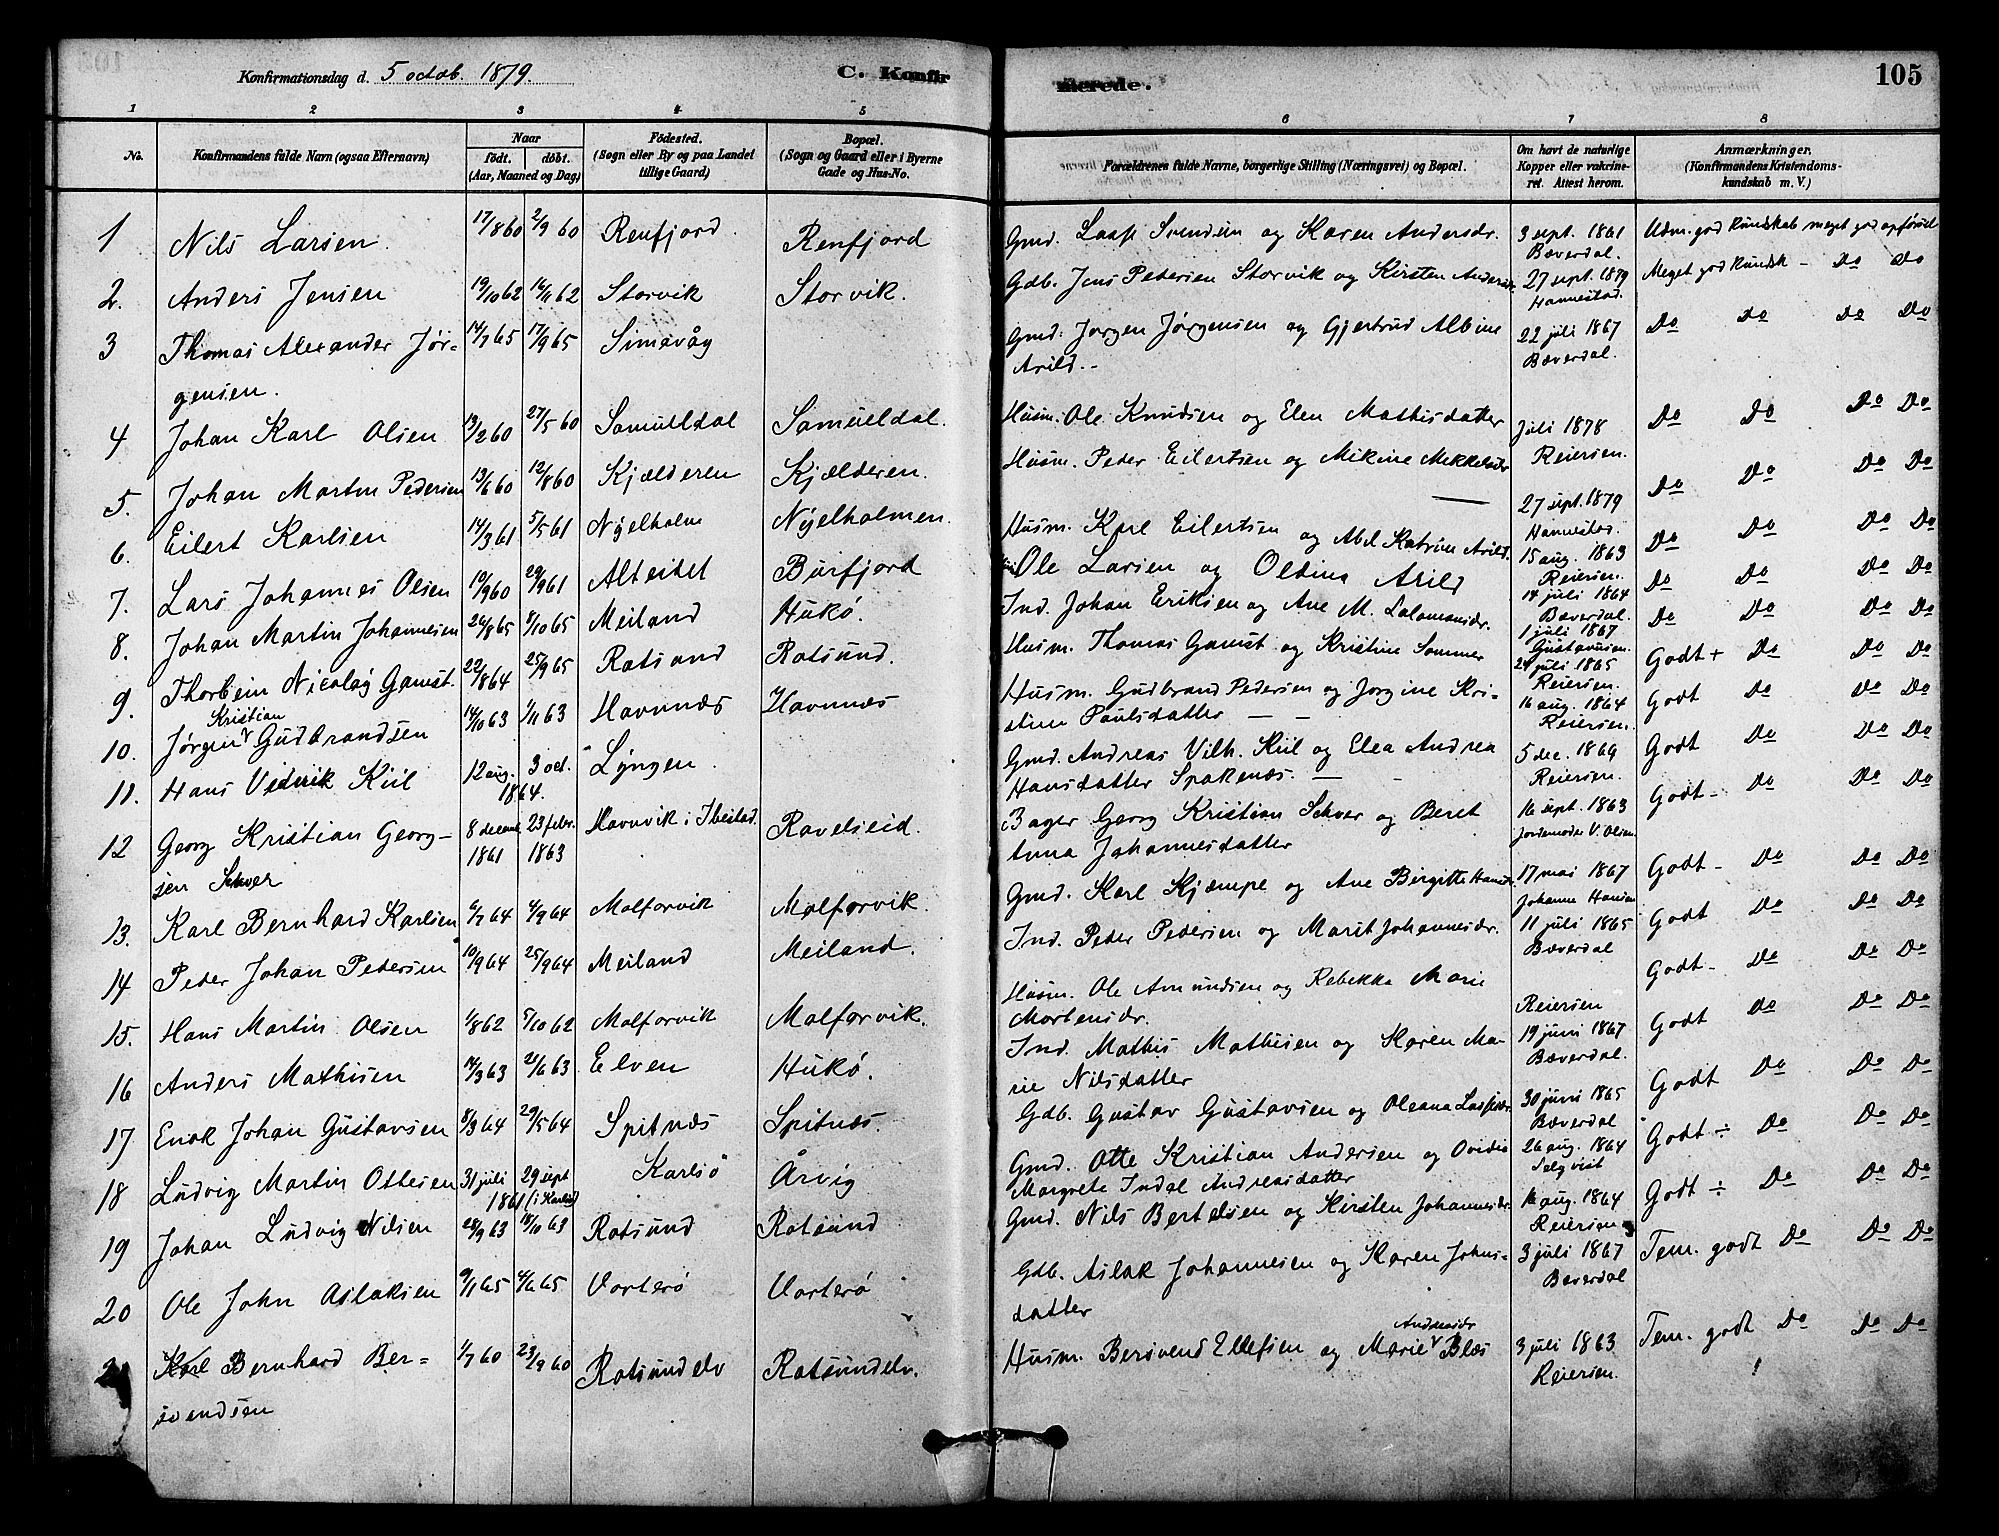 Konfirmationsdag d. 5 octob. 1879.
C. Konfirmerede.
105
1 2 3 4 5 6 7 8
No.
Konfirmandens fulde Navn (ogsaa Efternavn)
Naar
födt. döbt.
(Aar, Maaned og Dag)
Födested.
(Sogn eller By og paa Landet
tillige Gaard)
Bopæl.
(Sogn og Gaard eller i Byerne
Gade og Hus-No.
Forældrenes fulde Navne, borgerlige Stilling (Næringsvei) og Bopæl.
Om havt de naturlige
Kopper eller vakcine-
ret. Attest herom.
Anmærkninger.
(Konfirmandens Kristendoms-
kundskab m. V.)
1 Nils Larsen 17/8 60 2/9 60 Renfjord Renfjord Gmd. Lasse Svendsen og Karen Andersdr. 3 sept. 1861 Udm. god kundskab meget god opførsel
Bæverdal.
2. Anders Jensen 19/10 62 16/11 62 Storvik Storvik. Gdb. Jens Pedersen Storvik og Kirsten Andersdr. 27 sept. 1879 Meget god kundsk - Do Do
Hannestad.
3 Thomas Alexander Jør- 14/7 65 17/9 65 Simavåg Gmd. Jørgen Jørgensen og Gjertrud Albine 22 juli 1867 Do Do Do Do
gensen. Arild.- Bæverdal.
4 Johan Karl Olsen 13/2 60 27/5 60 Samueldal Samueldal. Husm. Ole Knudsen og Elen Mathisdatter juli 1878 Do Do Do Do
Reiersen.
5. Johan Martin Pedersen 13/6 60 12/8 60 Kjælderen Kjælderen. Husm. Peder Eilertsen og Mikine Mekkelsdr 27 sept. 1879 Do Do Do Do
Hannestad.
6. Eilert Karlsen 14/3 61 5/5 61 Nyelholm Nyelholmen. Husm. Karl Eilertsen og Abel Katrine Arild. 15 aug. 1863 Do Do Do Do
Reiersen.
7. Lars Johannes Olsen 10/9 60 29/9 61 Alteidet Burfjord Ole Larsen og Oldina Arild 14 juli 1864 Do Do Do Do
Bæverdal.
8. Johan Martin Johannesen 26/8 65 8/10 65 Meiland Hukø. Ind. Johan Eriksen og Ane M. Salomonsdr. 1 juli 1867 Do Do Do Do
Gustavusen.
9. Thorbein Nicolay Gamst. 22/8 64 25/9 65 Rotsund Rotsund. Husm. Thomas Gamst og Kristine Sommer 24 juli 1865 Godt + Do Do Do
Reiersen.
Kristian
10. Jørgen Gudbrandsen 14/10 63 1/11 63 Havnnæs Havnnæs Husm. Gudbrand Pedersen og Jorgine Kri- 16 aug. 1864 Godt Do Do Do
stine Paulsdatter - - Reiersen.
11. Hans Vidrik Kiil 12 aug. 3 oct. Lyngen Gmd. Andreas Vilh. Kiil og Elea Andrea 5 dec. 1869 Godt Do Do Do
1864. Hansdatter Spakenæs. - Reiersen.
12 Georg Kristian Georg- 8 decemb 23 febr. Havnvik i Ibestad Ravelseid. Bager Georg Kristian Schver og Beret 16 sept. 1863 Godt - Do Do Do
sen Schver 1861 1863 Anna Johannesdatter Jordemoder V. Olsen.
13. Karl Bernhard Karlsen 6/7 64 4/9 64 Molforvik Molforvik. Gmd. Karl Kjæmpe og Ane Birgitte Hansdr. 17 mai 1867 Godt - Do Do Do
Johanne Hansdr.
14 Peder Johan Pedersen 10/9 64 25/9 64 Meiland Meiland. Ind. Peder Pedersen og Marit Johannesdr. 11 juli 1865 Godt Do Do Do
Bæverdal
15. Hans Martin Olsen 1/8 62 5/10 62 Molforvik Molforvik. Husm. Ole Amundsen og Rebekka Marie Reiersen Godt - Do Do Do
Mortensdr.
16 Anders Mathisen 14/3 63 21/6 63 Elven Hukø. Ind. Mathis Mathisen og Karen Ma- 19 juni 1867 Godt Do Do Do
rie Nilsdatter Bæverdal.
17 Enok Johan Gustavsen 8/3 64 29/5 64 Spitnæs Spitnæs. Gdb. Gustav Gustavsen og Oleana Lassesdr 30 juni 1865 Godt Do Do Do
Bæverdal
18 Ludvig Martin Ottesen 31 juli 29 sept Karlsö Årvig Gmd. Otte Kristian Andersen og Ovidia 26 aug. 1864 Godt ÷ Do Do Do
1861 (i Karlsö) Margrete Indal Andreasdatter Selqvist
19 Johan Ludvig Nilsen 28/9 63 18/10 63 Rotsund Rotsund Gmd. Nils Bertelsen og Kirsten Johannesdr. 16 aug. 1864 Godt ÷ Do Do Do
Reiersen
20 Ole John Aslaksen 9/1 65 4/6 65 Vorterø Vorterø Gdb. Aslak Johannesen og Karen Johns- 3 juli 1867 Tem. godt Do Do Do
datter Bæverdal
Andreasdr
21 Karl Bernhard Ber= 1/7 60 23/9 60 Rotsundelv Rotsundelv. Husm. Bersvend Ellefsen og Marie Blæs 3 juli 1863 Tem. godt Do Do Do
svendsen Reiersen.